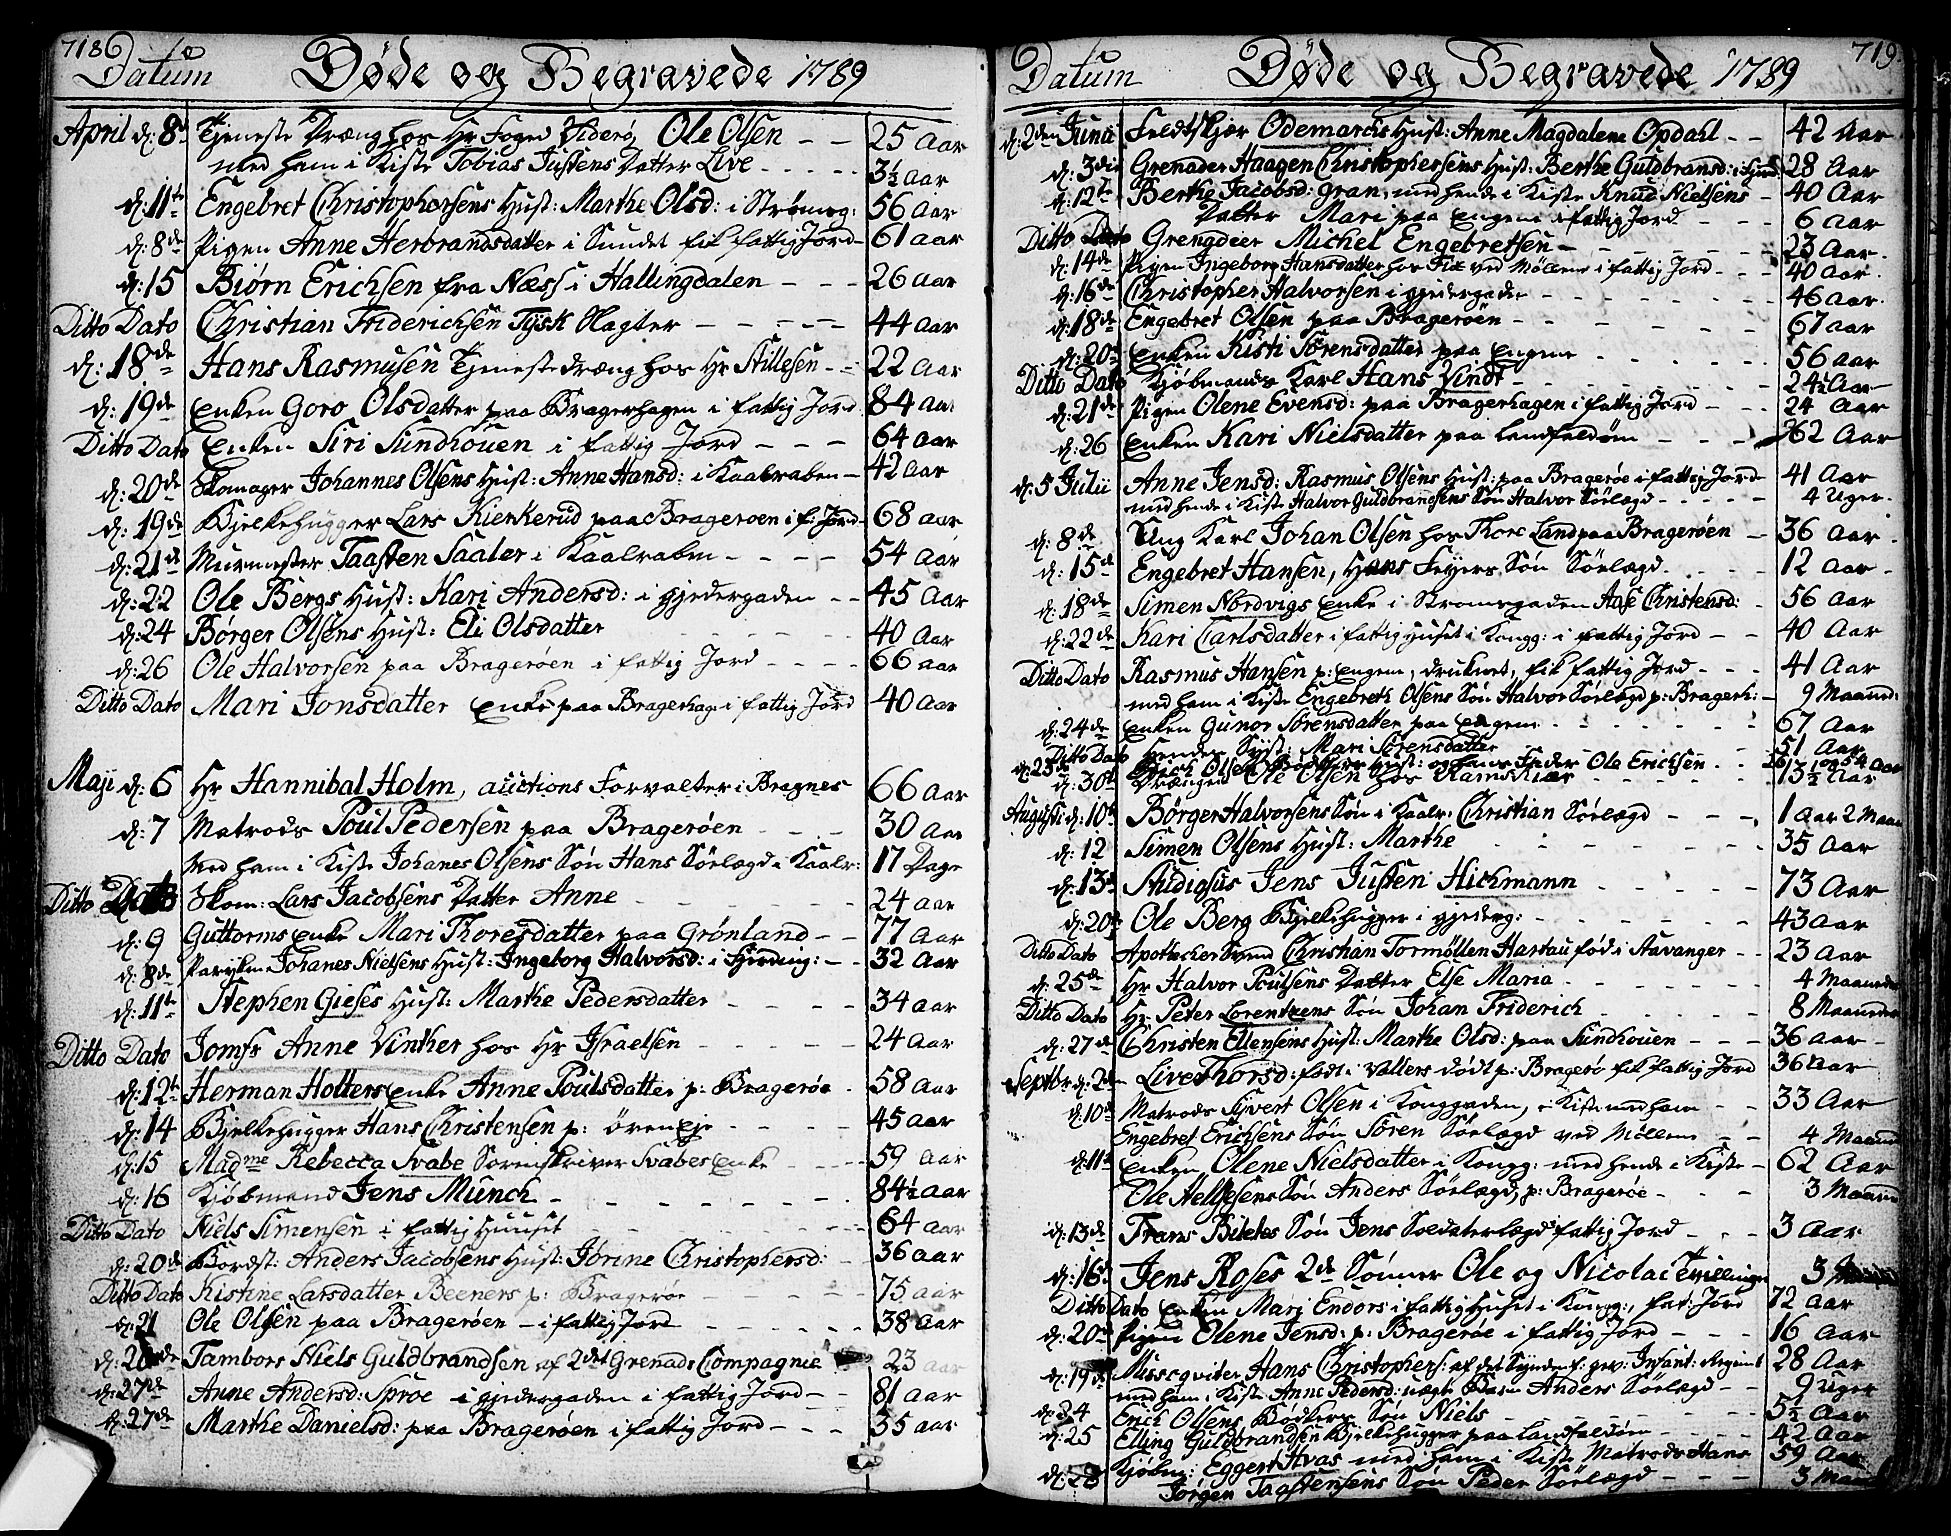 718
Datum Døde og Begravede 1789
April d: 8de Tjeneste Dræng hos Hr Foged Viderø, Ole Olsen - - 25 Aar
med ham i Kiste Tobias Justens Datter Live - - - - - 3½ Aar
d: 11te Engebret Christophersens Hust: Marthe Olsd: i Strømsg: 56 Aar
d: 8de Pigen Anne Herbrandsdatter i Sundet fik fattig Jord - 61 Aar
d: 15 Biørn Erichsen fra Næss i Hallingdalen - - - 26 Aar
Ditto Dato Christian Friderichsen Tysk Slagter - - - - - 44 Aar
d: 18de Hans Rasmusen Tjenestedræng hos Hr Stillesen - - 22 Aar
d: 19de Enken Goro Olsdatter paa Bragerhagen i fattig Jord 84 Aar
Ditto Dato Enken Siri Sundhouen i fattig Jord - - - 64 Aar
d: 20de Skomager Johannes Olsens Hust: Anne Hansd: i Kaalraben - 42 Aar
d: 19de Bjelkehugger Lars Kierkerud paa Brageroen i f: Jord - 68 Aar
d: 21de Murmester Taasten Saaler i Kaalraben - - - - 54 Aar
d: 22 Ole Bergs Hust: Kari Andersd: i Gjedergaden - - 45 Aar
d: 24 Børger Olsens Hust: Eli Olsdatter 40 Aar
d: 26 Ole Halvorsen paa Bragerøen i fattig Jord - - - - 66 aar
Ditto Dato Mari Jonsdatter Enke paa Bragerhag: i fattig Jord 40 Aar
Maji d: 6 Hr Hannibal Holm, auctions Forvalter i Bragnes 66 Aar
d: 7 Matrods Poul Pedersen paa Bragerøen - - - 30 Aar
Med ham i Kiste Johanes Olsens Søn Hans Sørlægd i Kaalr: 17 Dage
Ditto Dato Skom: Lars Jacobsens Datter Anne - - - 24 aar
d: 9 Guttorms Enke Mari Thoresdatter paa Grønland - - 77 Aar
d: 8de Parykm: Johanes Nielsens Hust: Ingeborg Halvorsd: i - - 32 Aar
d: 11te Stephen Gieses Hust: Marthe Pedersdatter - - - - 34 aar
Ditto Dato Jomfr Anne Vinther hos Hr Israelsen - - - - 24 Aar
d: 12te Herman Holters Enke Anne Poulsdatter p: Bragerøe - 58 Aar
d: 14 Bjelkehugger Hans Christensen p: øren Eje - - - - 45 aar
d: 15 Madme Rebecca Svabe Sorenskriver Svabes Enke - - - - 59 Aar
d: 16 Kjøbmand Jens Münch - - - - - - 84½ Aar
Ditto Dato Niels Simensen i fattig Huuset - - - - - - 64 aar
d: 20de Bordst: Anders Jacobsens Hust: Jørine Christophersd: - 36 aar
Ditto Dato Kistine Larsdatter Beeners p: Bragerøe - - - - - 75 aar
d: 21 Ole Olsen paa Bragerøen - i fattig Jord - - - - - 38 Aar
d: Tambors Niels Guldbrandsen af 2det Grenad: Compagnie 23 aar
d: 27de Anne Andersd: Sproe i Gjedergaden i fattig Jord - - 81 aar
d: 27de Marthe Danielsd: paa Bragerøen i fattig Jord - - - 35 aar
719
Datum Døde og Begravede 1789
d: 2den Junii Feldtskjær Odemarcks Hust: Anne Magdalene Opdahl - - 42 Aar
d: 3die Grenader Haagen Christophersens Hust: Berthe Guldbransd: i 28 Aar
d: 12te Berthe Jacobsd: Gran, med hende i Kiste Knud Nielsens - 40 Aar
Datter Mari paa Engene i fattig Jord - - - 6 aar
Ditto Dato Grenadeer Michel Engebretsen - - - - - - - 23 Aar -
d: 14de Pigen Ingeborg Hansdatter hos Fix ved Møllen i fattig Jord - - - 40 Aar.
d: 16de Christopher Halvorsen i Gjedergaden - - - - - - 46 aar.
d: 18de Engebret Olsen paa Bragerøen - - - - - - 67 aar
d: 20de Enken Kisti Sørensdatter paa Engene - - - - - 56 aar
Ditto Dato Kjøbmands Karl Hans Vindt - - - - - - - 24½ Aar
d: 21de Pigen Olene Evensd: paa Bragerhagen i fattig Jord - - - 24 Aar
d: 26 Enken Kari Nielsdatter paa Landfaldøen - - - 62 Aar
d: 5 Julii Anne Jensd: Rasmus Olsens Hust: paa Bragerøe i fattig Jord - 41 Aar
med hende i Kiste Halvor Guldbrandsens Søn Halvor Sørlægd - - - - 4 Uger -
d: 8de Ung Karl Johan Olsen hos Thore Land paa Bragerøen - 36 aar
d: 15de Engebret Hansen, Hans Feyers Søn Sørlægd - - - - 12 Aar -
d: 18de Simen Nordvigs Enke i Stromsgaden Aase Christensd: - 56 Aar
d: 22de Kari Carlsdatter i fattig Huset i Kongg: i fattig Jord - - 40 Aar
Ditto Dato Rasmus Hansen p: Engene, druknet, fik fattig Jord - - - 41 Aar
med ham i Kiste Engebreth Olsens Søn Halvor Sørlægd p: Bragerh: - 9 Maaned:
d: 24de Enken Gunor Sørensdatter paa Engene - - - - 67 Aar
Ditto Dato hendes Syst: Mari Sørensdatter 51 Aar
d: 25de Olsen Bødkers Hust: og hans Fader Ole Erichsen - - - og 54 Aar
d: 30te Drængen Ole Olsen hos Ramskiær - - - - - 13½ Aar
Augusti d: 10de Børger Halvorsens Søn i Kaalr: Christian Sørlægd - - - 1 Aar 2 Maan
d: 12 Simen Olsens Hust: Marthe - - - - - - 35 Aar
d: 13de Studiosus Jens Justen Hichmann - - - - - 73 Aar
d: 20de Ole Berg Bjelkehugger i Gjederg: - - - - - 43 Aar
Ditto Dato Apothecher Svend Christian Tormøllen Hartau fød i Stavanger - - 23 Aar
d: 25de Hr Halvor Poulsens Datter Else Maria - - - - - - 4 Maaneder
Ditto Dato Hr Peter Lorentzens Søn Johan Friderich - - - - 8 Maaneder
d: 27de Christen Ellensens Hust: Marthe Olsd: paa Sundhouen - - - 36 aar -
Septbr d: 2den Live Thorsd: født i Valders dødt p: Bragerø fik fattig Jord 36 Aar
d: 10de Matrods Sivert Olsen i Konggaden, i Kiste med ham - - 33 Aar
Engebret Erichsens Søn Søren Sørlægd ved Møllen - - 4 Maaned
d: 11te Enken Olene Nielsdatter i Kongg: med hende i Kiste - 62 Aar
Ole Helgesens Søn Anders Sørlægd, p: Bragerøe - - - 3 Maaned
d: 13de Frans Biletes Søn Jens Soldaterlægd i fattig Jord - - - 3 Aar
d: 16de Jens Roses 2de Sønner Ole og Nicolai Tvillinger 3
Ditto Dato Enken Mari Endors i fattig Huset i Kongg:, fat: Jord 72 Aar
d: 20de Pigen Olene Jensd: p: Bragerøe i fattig Jord - - - 16 Aar
d: 19de Missqviter Hans Christophers: af det Synden f: gev: Infant: Regiment 28 Aar
med ham i Kiste Anne Pedersd: uægte Barn Anders Sørlægd - - 9 uger
d: 24 Erich Olsens Bødkers Søn Niels - - - - - 5½ Aar
d: 25 Elling Guldbrandsen Bjelkehugger paa Landfaldøen - - - - 42 Aar
d: 28 Kjøbm: Eggert Hvas med ham i Kiste Matrods Hans 59 Aar
Jørgen Taastensens Søn Peder Sørlægd - - - - 3 Maan